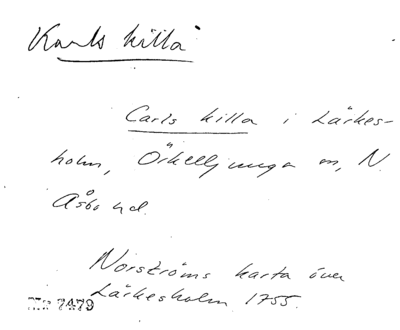 Karls killa
Carls killa i Lärkes-
holm, Örkelljunga sn, N.
Åsbo hd.
Norströms karta över
Lärkesholm 1755.
7479